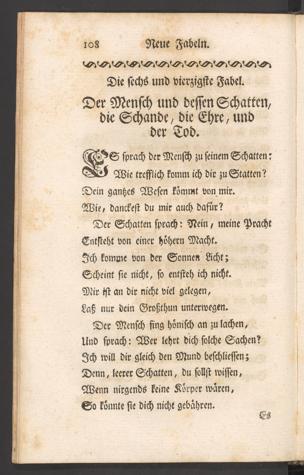 108 Neue Fabeln.
Die sechs und vierzigste Fabel.
Der Mensch und dessen Schatten,
die Schande, die Ehre, und
der Tod.
ES sprach der Mensch zu seinem Schatten:
Wie trefflich komm ich dir zu Statten?
Dein gantzes Wesen kömmt von mir.
Wie, danckest du mir auch dafür?
Der Schatten sprach: Nein, meine Pracht
Entsteht von einer höhern Macht.
Ich komme von der Sonnen Licht;
Scheint sie nicht, so entsteh ich nicht.
Mir ist an dir nicht viel gelegen,
Laß nur dein Großthun unterwegen.
Der Mensch fing hönisch an zu lachen,
Und sprach: Wer lehrt dich solche Sachen?
Ich will dir gleich den Mund beschliessen;
Denn, leerer Schatten, du sollst wissen,
Wenn nirgends keine Körper wären,
So könnte sie dich nicht gebähren.
Es